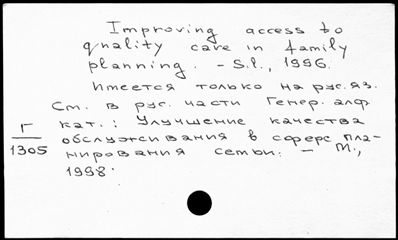 Improving access to
quality care in family
planning. - S.l., 1996.
Имеется только на рус. яз.
См. в рус. части Генер. алф.
кат.: Улучшение качества
обслуживания в сфере пла-
нирования семьи. - М.,
1998.
Г
1305